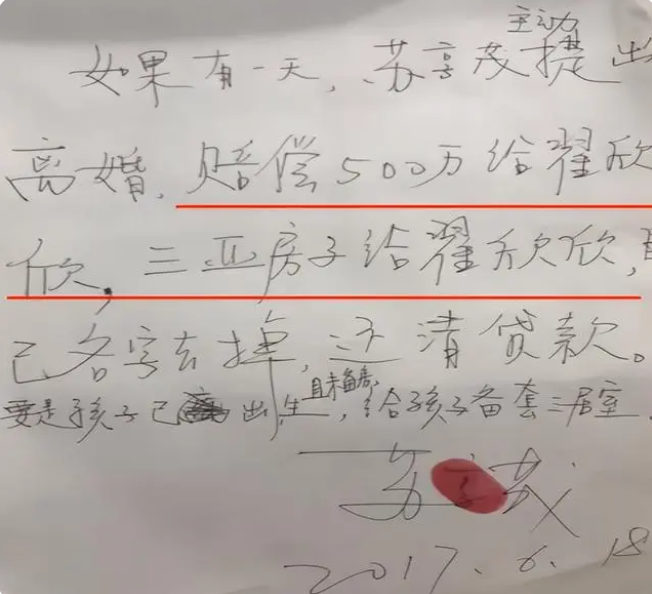 主动
如果有一天,苏享茂提出
离婚.赔偿500万给翟欣
欣,三亚房子给翟欣欣,自
己名字去掉,还清贷款。
且未备房,
要是孩子已出生,给孩子备套三居室.
苏享茂
2017.6.18